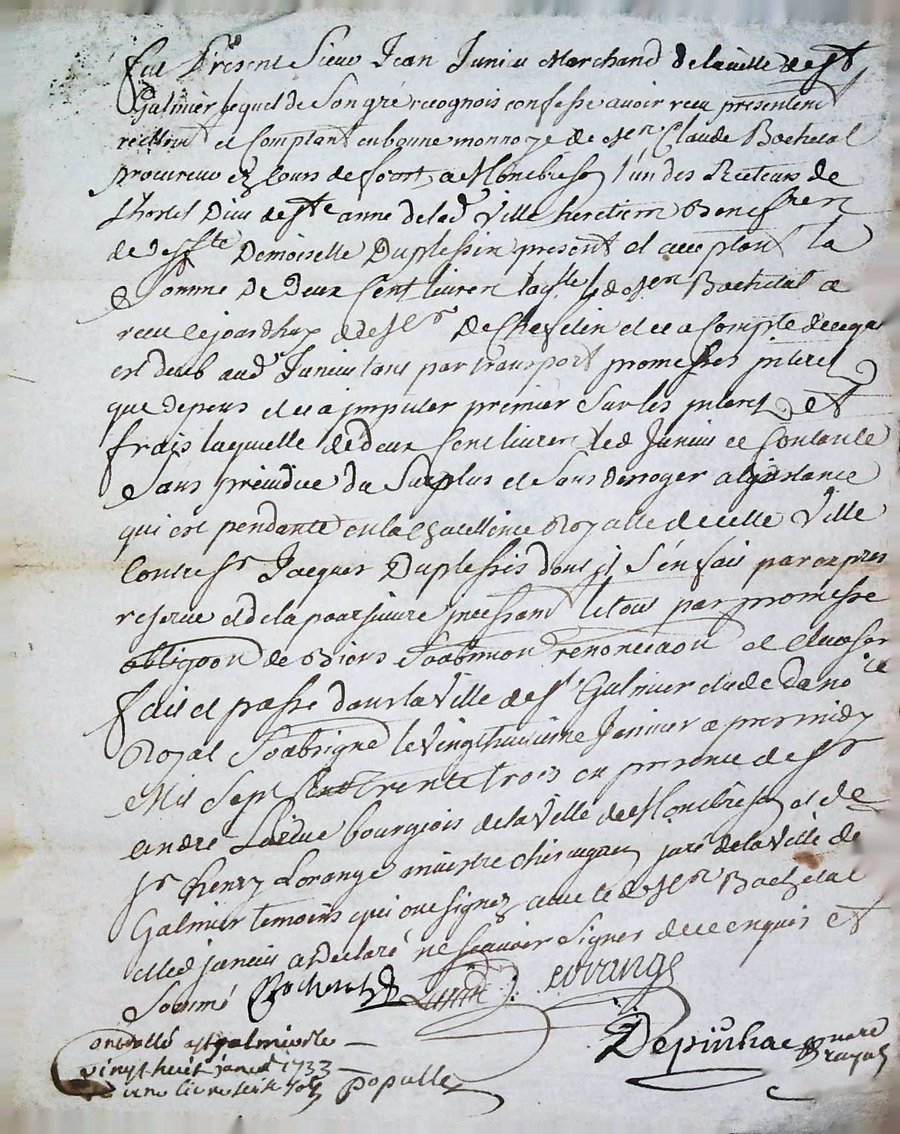 fut Présent Sieur Jean Juniu Marchand de la ville de St
Galmier lequel de son gré recognois confesse avoir receu presentem
reellmt et Comptant en bonne monnoye de Mr Claude Bochetal
procureur ez Cours de forest a Montbrison l'un des Recteurs de
Lhotel Dieu de Ste anne de lad Ville heretiere Beneffren
de deffte Demoiselle Duplessin present et acceptant La
Somme De Deux Cent livres led Mr Bochetal a
receu cejourdhuy de Mr De et a Compte de ce qui
est deub aud Sr Juniu tant par transport promesses jnterets
que depens et a jmputer premier Sur les jnterets et
frais laquelle de deux Cent livres led Juniu ce Contante
Sans preiudice du Surplus et Sans derroger a ljnstance
qui est pendante en la Chatellenie Royalle de cette Ville
Contre Sr Jacques Duplessis dont jl s'en fait par expres
reserve et de la poursuivre jncessamt le tout par promesse
obligaon de Biens Soubmion renonciaon et clauses
fait et passé dans la Ville de St Galmier etude da nore
Royal Soubsigné le vingthuitieme Janvier apres midy
Mil Sept Cent trente trois en presence de Sr
andré Larue bourgeois de la Ville de Montbrison et de
Sr Henry Lorange maistre chirurgien juré de la Ville de
Galmier temoins qui ont signez avec led Mr Bochetal
et led juniu a declaré ne Scavoir Signer de ce enquis et
Sommé Bochetal Larue Lorange
Controllé a St galmier le
vingt huit janer 1733
R une livre seize sols Populle
Depiuhac nore royal